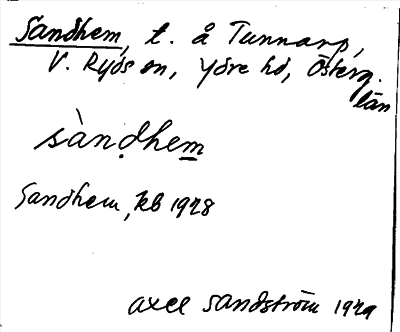 Sandhem, t. å Tunnarp,
V. Ryds sn, Ydre hd, Österg.
län
sàn̩dhem
Sandhem, kb 1928
Axel Sandström 1929